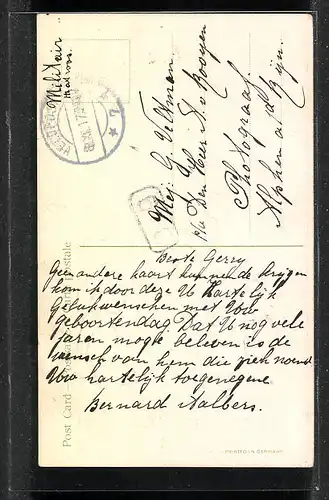 Militair
Mej: G Veltman
p/a Den Heer A. v Rooyen
Photograaf
Alphen a/d Rijn.
Beste Gerry
Geen andere kaart kunnende krijgen
kom ik door deze U Hartelijk
gelukwenschen met Uw
geboortendag Dat U nog vele
jaren moge beleven is de
wensch van hem die zich noemt
Uw hartelijk toegenegene
Bernard Aalbers.
Post Card
PRINTED IN GERMANY